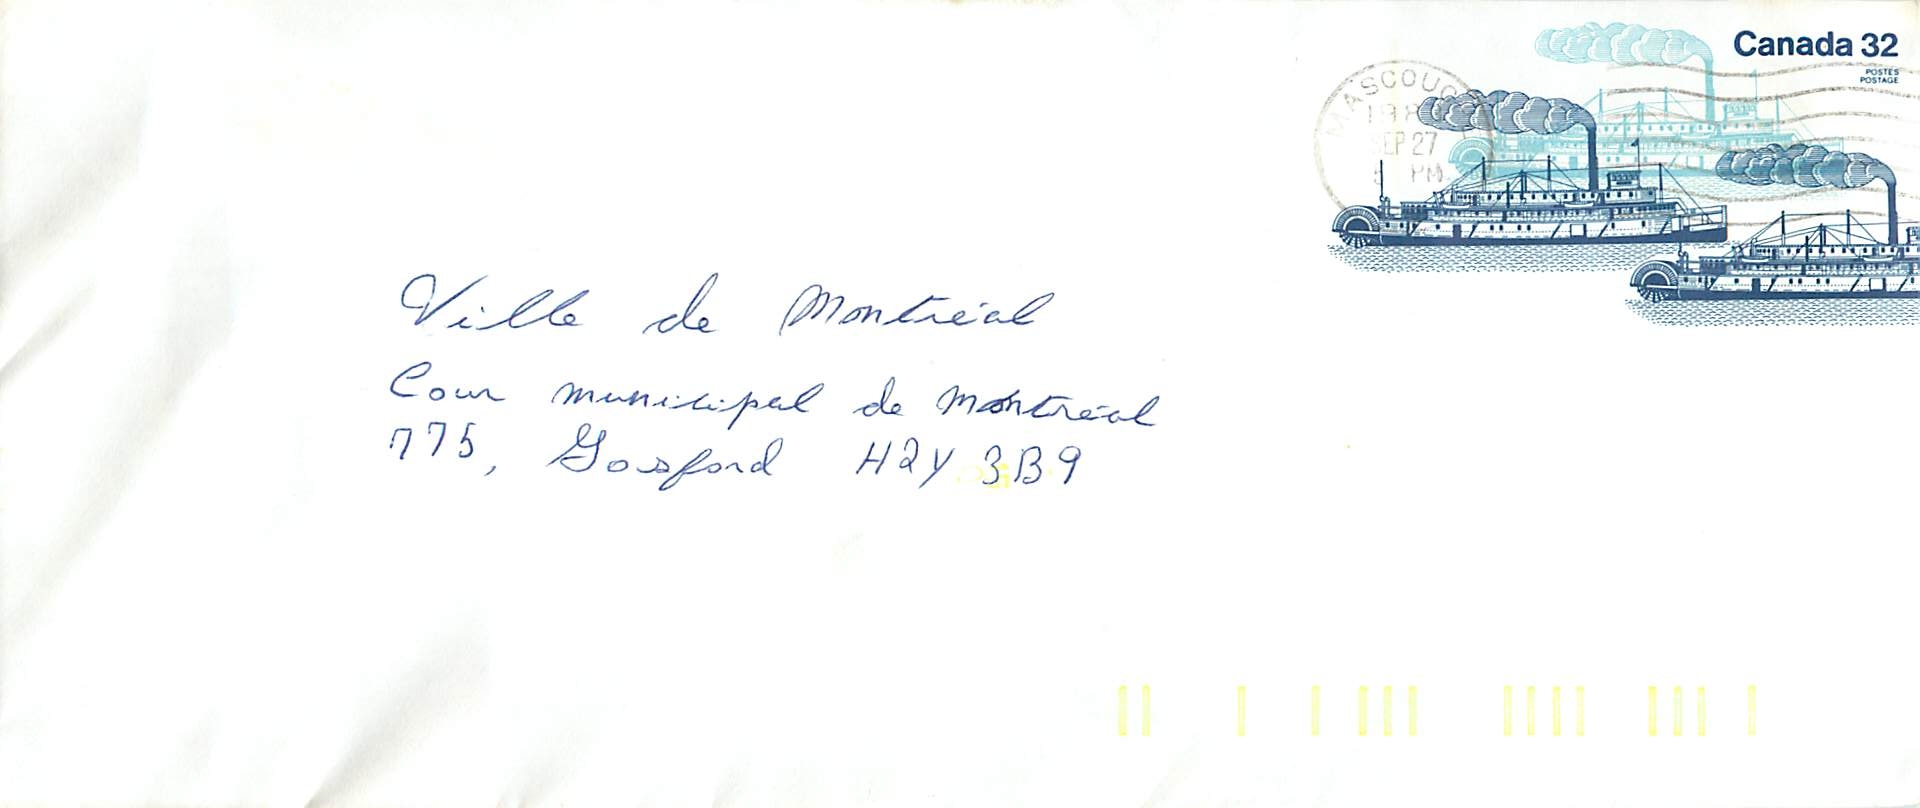 Canada 32
POSTES
POSTAGE
SEP 27
PM
Ville de Montréal
Cour municipal de Montréal
775, Gosford H2Y 3B9